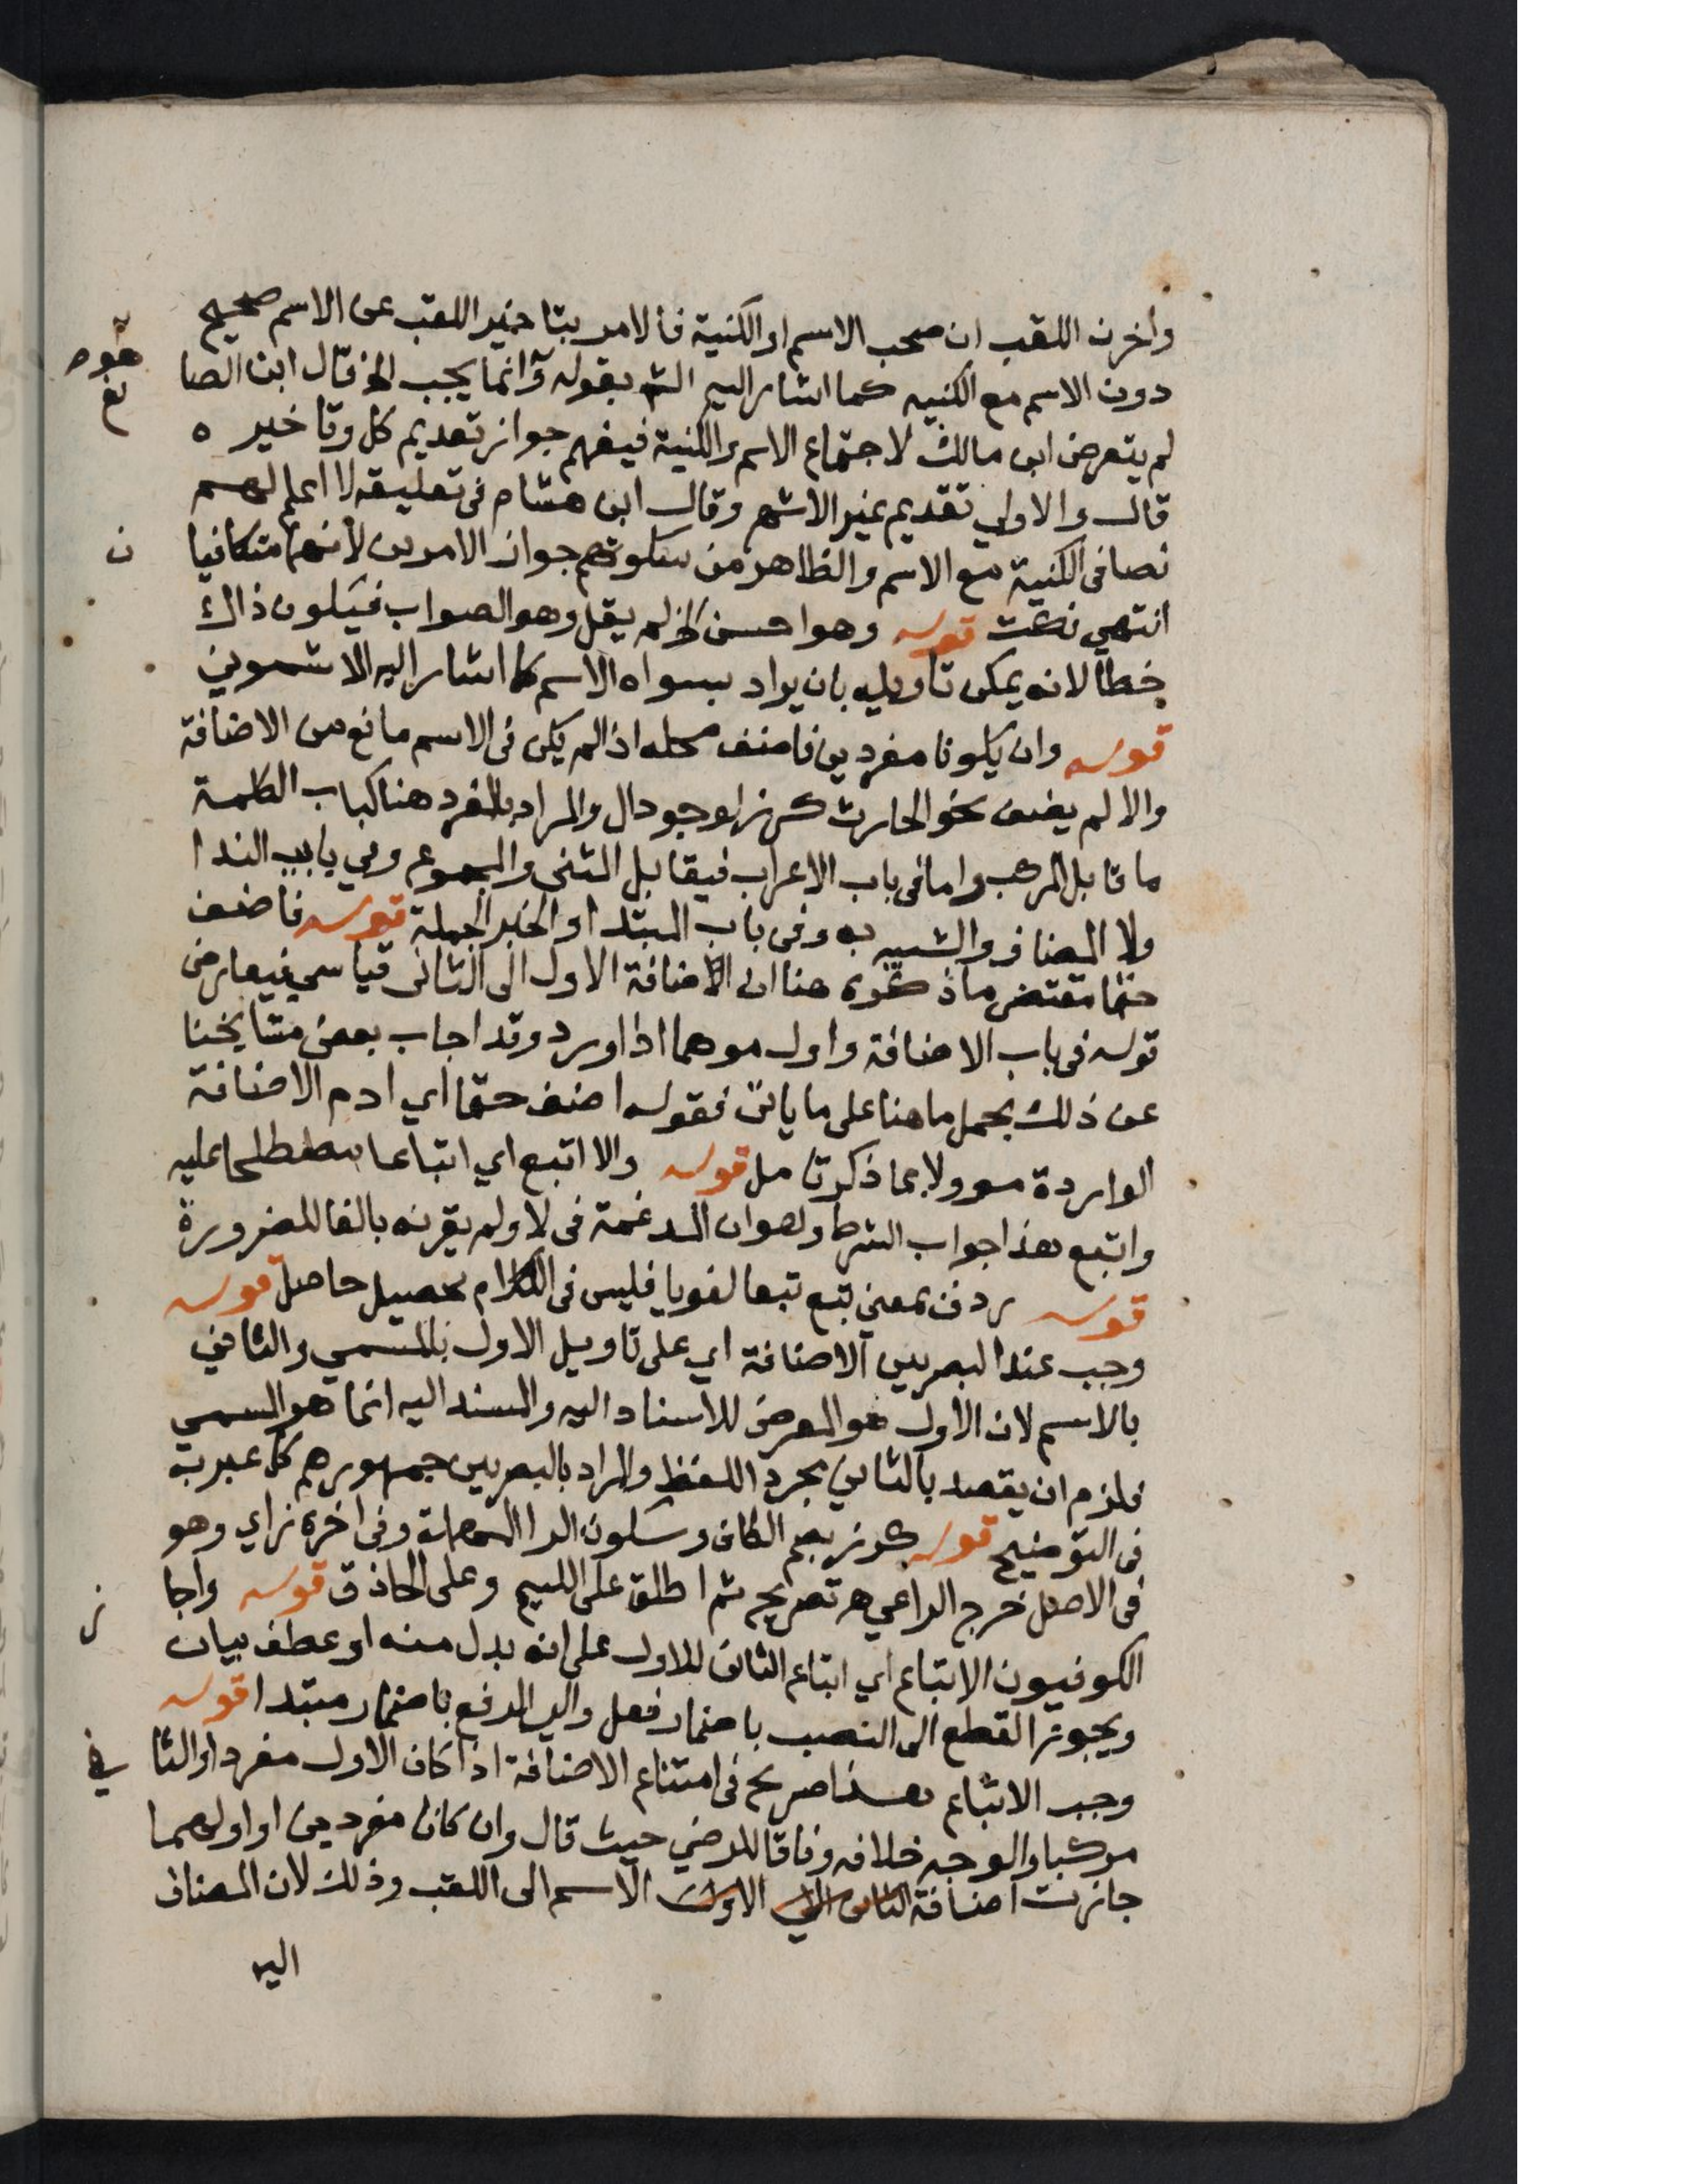 واخرن اللقب ان صحب الاسم او الكنية فالامر بتاخير اللقب عن الاسم صحيح
دون الاسم مع الكنيه كما اشار اليه الش بقوله وانما يجب الخ قال ابن الصا
يغ
لم يتعرض ابن مالك لاجتماع الاسم والكنية فيفهم جواز تقديم كل وتاخيره
قال والاولي تقديم غير الاشهر وقال ابن هشام في تعليقه لا اعلم لهم
نصا في الكنية مع الاسم والظاهر من سكوتهم جواز الامرين لانهما متكافيا
ن
انتهي نكت قوله وهو احسن الخ لم يقل وهو الصواب فيكون ذاك
خطأ لانه يمكن تاويله بان يراد بسواه الاسم كما اشار اليه الاشموني
قوله وان يكونا مفردين فاضف محله اذا لم يكن في الاسم مانع من الاضافة
والا لم يضف نحو الحارث كرز لوجود ال والمراد بالمفرد هنا كباب الكلمة
ما قابل المركب واما في باب الاعراب فيقابل المثني والمجموع وفي باب الندا
ولا المضاف والشبيه به وفي باب المبتدا والخبر الجملة قوله فاضف
حتما مقتضى ما ذكروه هنا ان اضافة الاول الى الثاني قياسي فيعارض
قوله في باب الاضافة واول موهما اذا ورد وقد اجاب بعض مشايخنا
عن ذلك بحمل ما هنا على ما ياتي فقوله اضف حتما اي ادم الاضافة
الواردة موولا بما ذكرتا مل قوله والا اتبع اي اتباعا مصطلحا عليه
واتبع هذا جواب الشرط وهو ان المدغمة في لا ولم يقرنه بالفا للضرورة
قوله ردف بمعني تبع تبعا لغويا فليس في الكلام تحصيل حاصل قوله
وجب عند البصريين الاضافة اي على تاويل الاول بالمسمي والثاني
بالاسم لان الاول هو المعرض للاسناد اليه والمسند اليه انما هو المسمي
فلزم ان يقصد بالثاني مجرد اللفظ والمراد بالبصريين جمهورهم كما عبر به
في التوضيح قوله كرز بضم الكاف وسكون الرا المهملة وفي اخره زاي وهو
في الاصل خرج الراعي ه تصريح ثم اطلق على اللييم وعلى الحاذق قوله واجا
ز
الكوفيون الاتباع اي اتباع الثاني للاول على انه بدل منه او عطف بيان
ويجوز القطع الى النصب باضمار فعل والى الرفع باضمار مبتدا قوله
وجب الاتباع هذا صريح في امتناع الاضافة اذا كان الاول مفردا والثا
ني
مركبا والوجه خلافه وفاقا للرضي حيث قال وان كانا مفردين او اولهما
جازت اضافة الثاني الى الاول الاسم الى اللقب وذلك لان المضاف
اليه